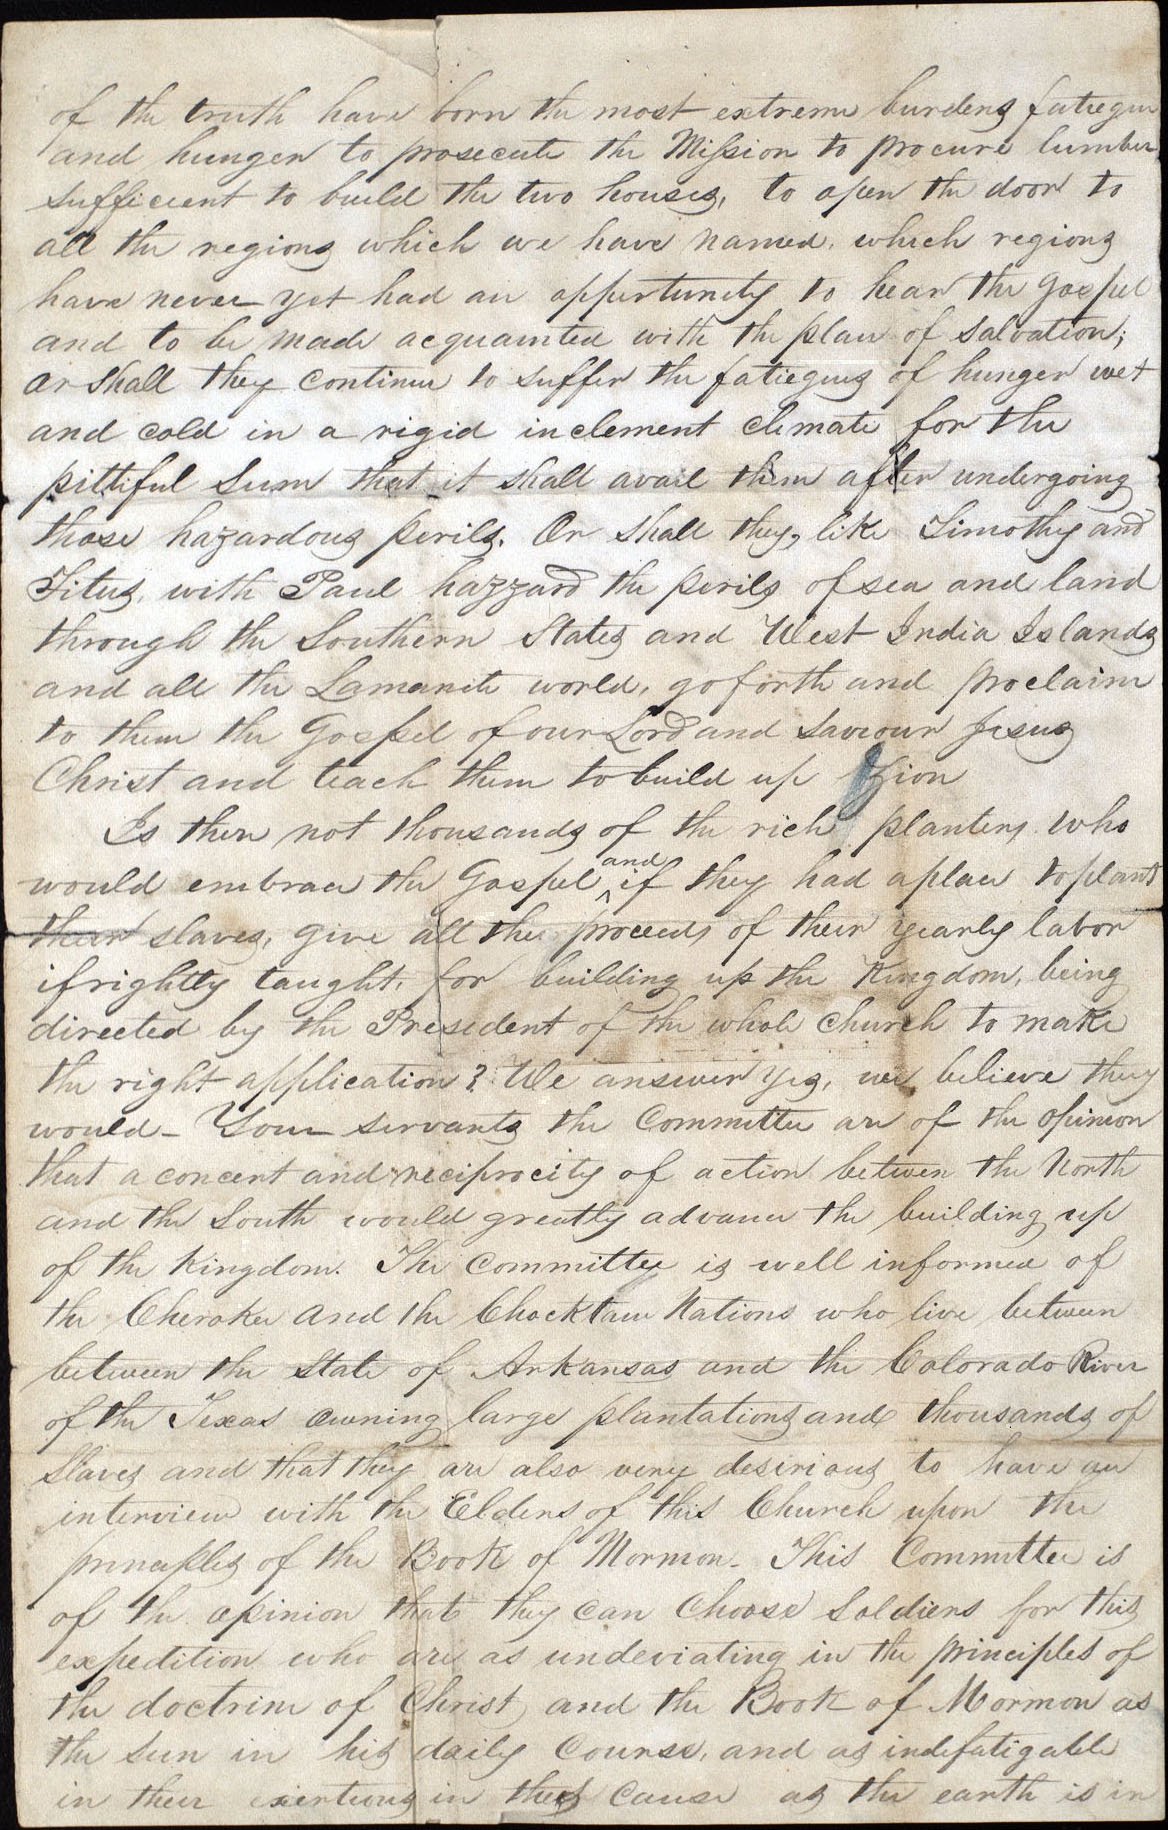 of the truth have born the most extreme burdens fatiegue
and hunger to prosecute the Mission to procure lumber
sufficient to build the two houses, to open the door to
all the regions which we have named, which regions
have never yet had an oppertunity to hear the Gospel
and to be made acquainted with the plan of Salvation;
or shall they continue to suffer the fatiegues of hunger wet
and cold in a rigid inclement climate for the
pittiful Sum that it shall avail them after undergoing
those hazardous perils. Or shall they, like Timothy and
Titus, with Paul hazzard the perils of sea and land
through the Southern States and West India Islands
and all the Lamanite world, go forth and proclaim
to them the Gospel of our Lord and Saviour Jesus
Christ and teach them to build up Zion
Is there not thousands of the rich planters who
would embrace the Gospel and if they had a place to plant
their slaves, give all the proceeds of their yearly labor
if rightly taught, for building up the Kingdom, being
directed by the President of the whole church to make
the right application? We answer yes, we believe they
would— Your servants the Committee are of the opinion
that a concert and reciprocity of action between the North
and the South would greatly advance the building up
of the Kingdom. The Committee is well informed of
the Cherokee and the Chocktaw Nations who live between
between the State of Arkansas and the Colorado River
of the Texas owning large plantations and thousands of
Slaves and that they are also very desirious to have an
interview with the Elders of this Church upon the
principles of the Book of Mormon. This Committee is
of the opinion that they can Choose Soldiers for this
expedition who are as undeviating in the principles of
the doctrine of Christ, and the Book of Mormon as
the Sun in his daily Course, and as indefatigable
in their exertions in this Cause as the earth is in